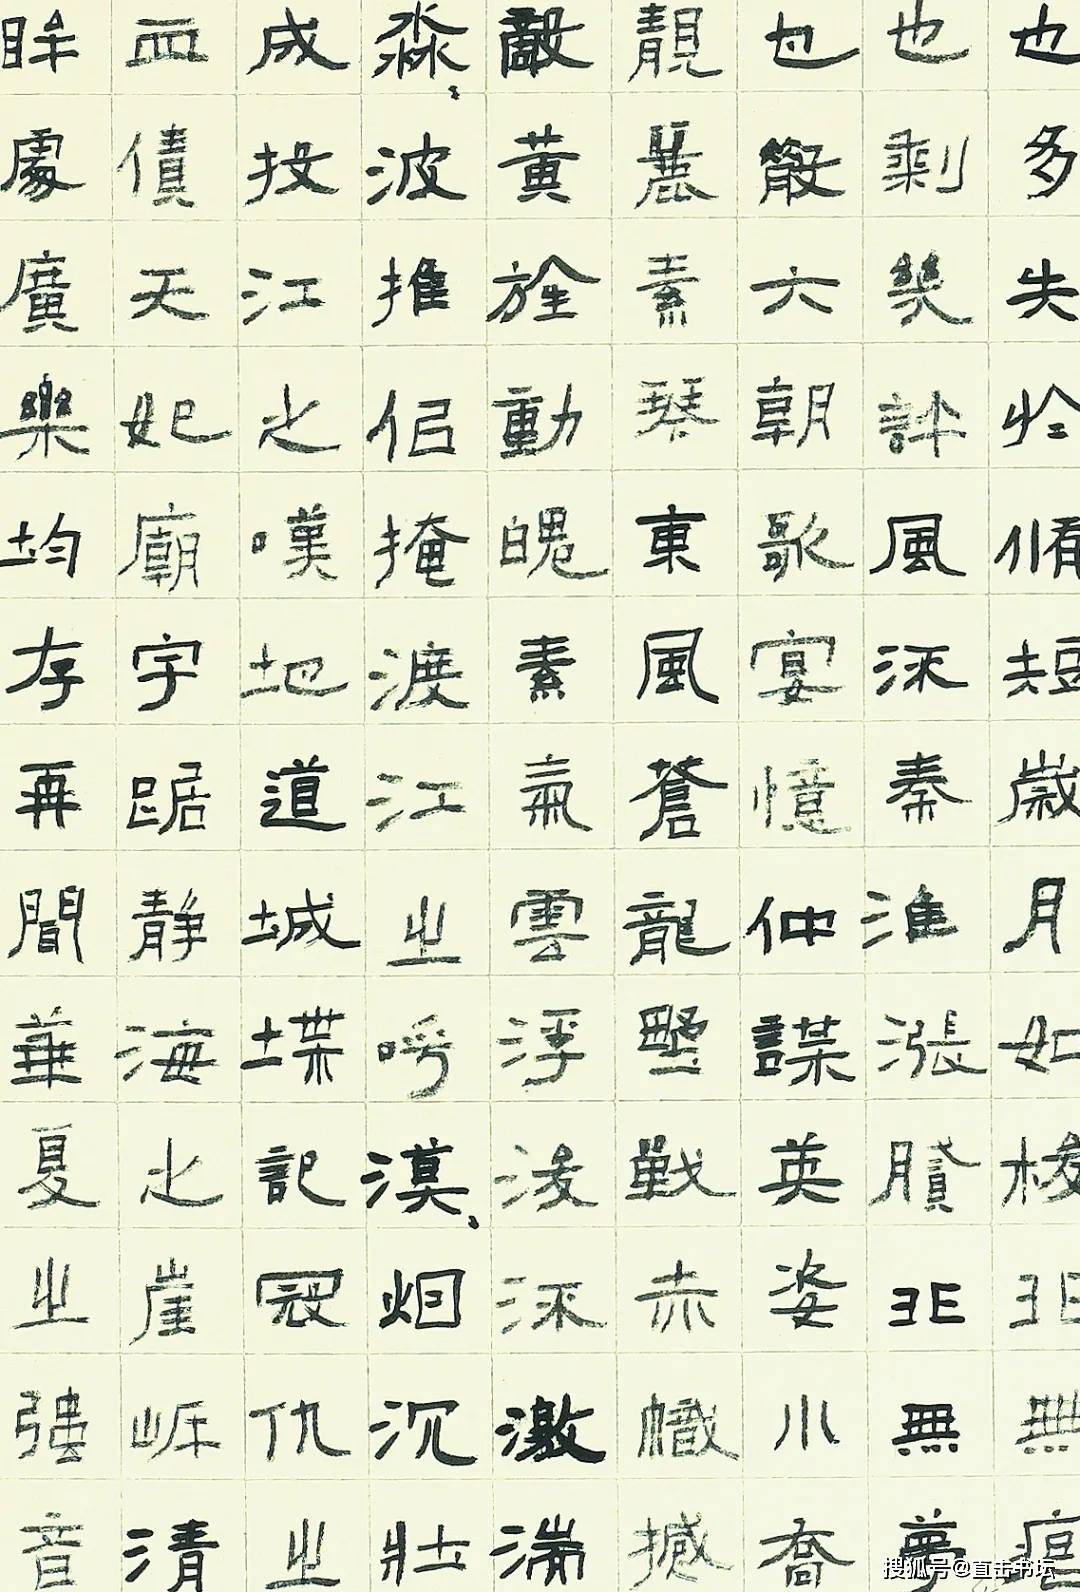 也多失脩短歲月如梭非無
也剩幾評風深秦淮漲膩非無夢
也散六朝歌宴憶仲謀英姿小喬
靚麗素琴東風蒼龍戰赤幟撼
敵黃旌動魄素氣雲浮深激湍
淼波推侶掩渡江之呼漠烟沉壯
成投江之嘆地道城堞記冠仇之
血債天妃廟宇踞靜海之崖清
眸處廣樂均存再聞華夏之強音
搜狐号@直击书坛